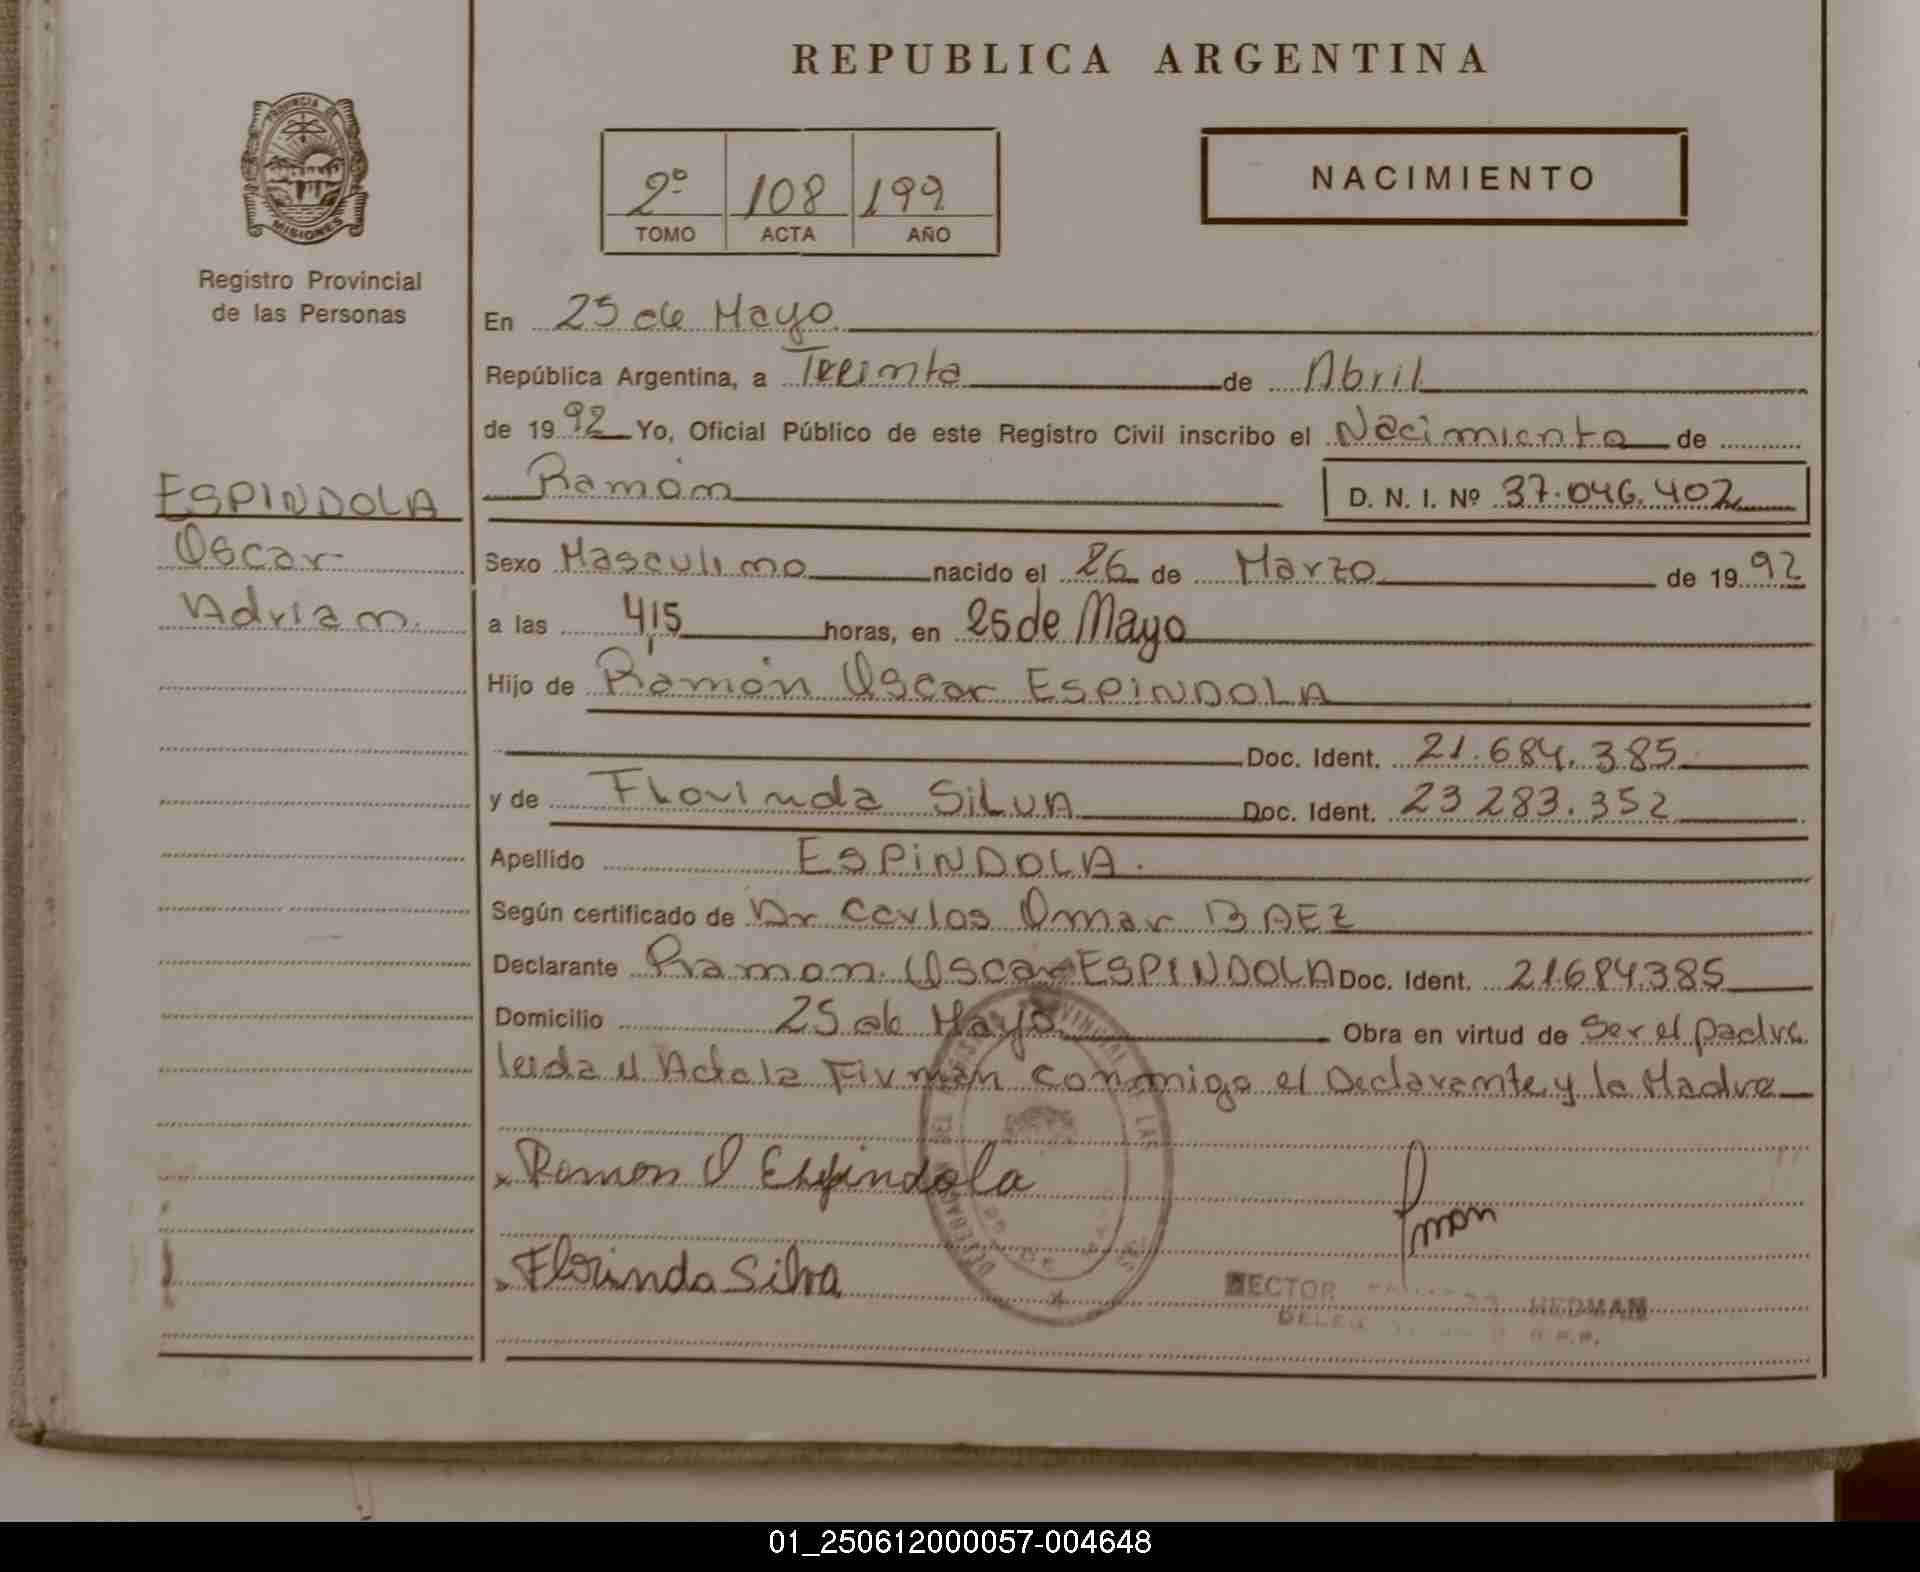 REPUBLICA ARGENTINA
PROVINCIA DE
MISIONES
Registro Provincial
de las Personas
2º 108 199
TOMO ACTA AÑO
NACIMIENTO
En 25 de Mayo
República Argentina, a Treinta de Abril
de 19 92 Yo, Oficial Público de este Registro Civil inscribo el Nacimiento de
Ramón D. N. I. Nº 37.046.402
ESPINDOLA
Oscar
Adrian.
Sexo Masculino nacido el 26 de Marzo de 19 92
a las 4,15 horas, en 25 de Mayo
Hijo de Ramón Oscar ESPINDOLA
Doc. Ident. 21.684.385
y de Florinda SILVA Doc. Ident. 23 283.352
Apellido ESPINDOLA.
Según certificado de Dr Carlos Omar BAEZ
Declarante Ramon Oscar ESPINDOLA Doc. Ident. 21.684.385
Domicilio 25 de Mayo Obra en virtud de Ser el padre
leida el Acta la Firman conmigo el Declarante y la Madre
Ramon O Espindola
Florinda Silva
HECTOR HEDMAN
01_250612000057-004648